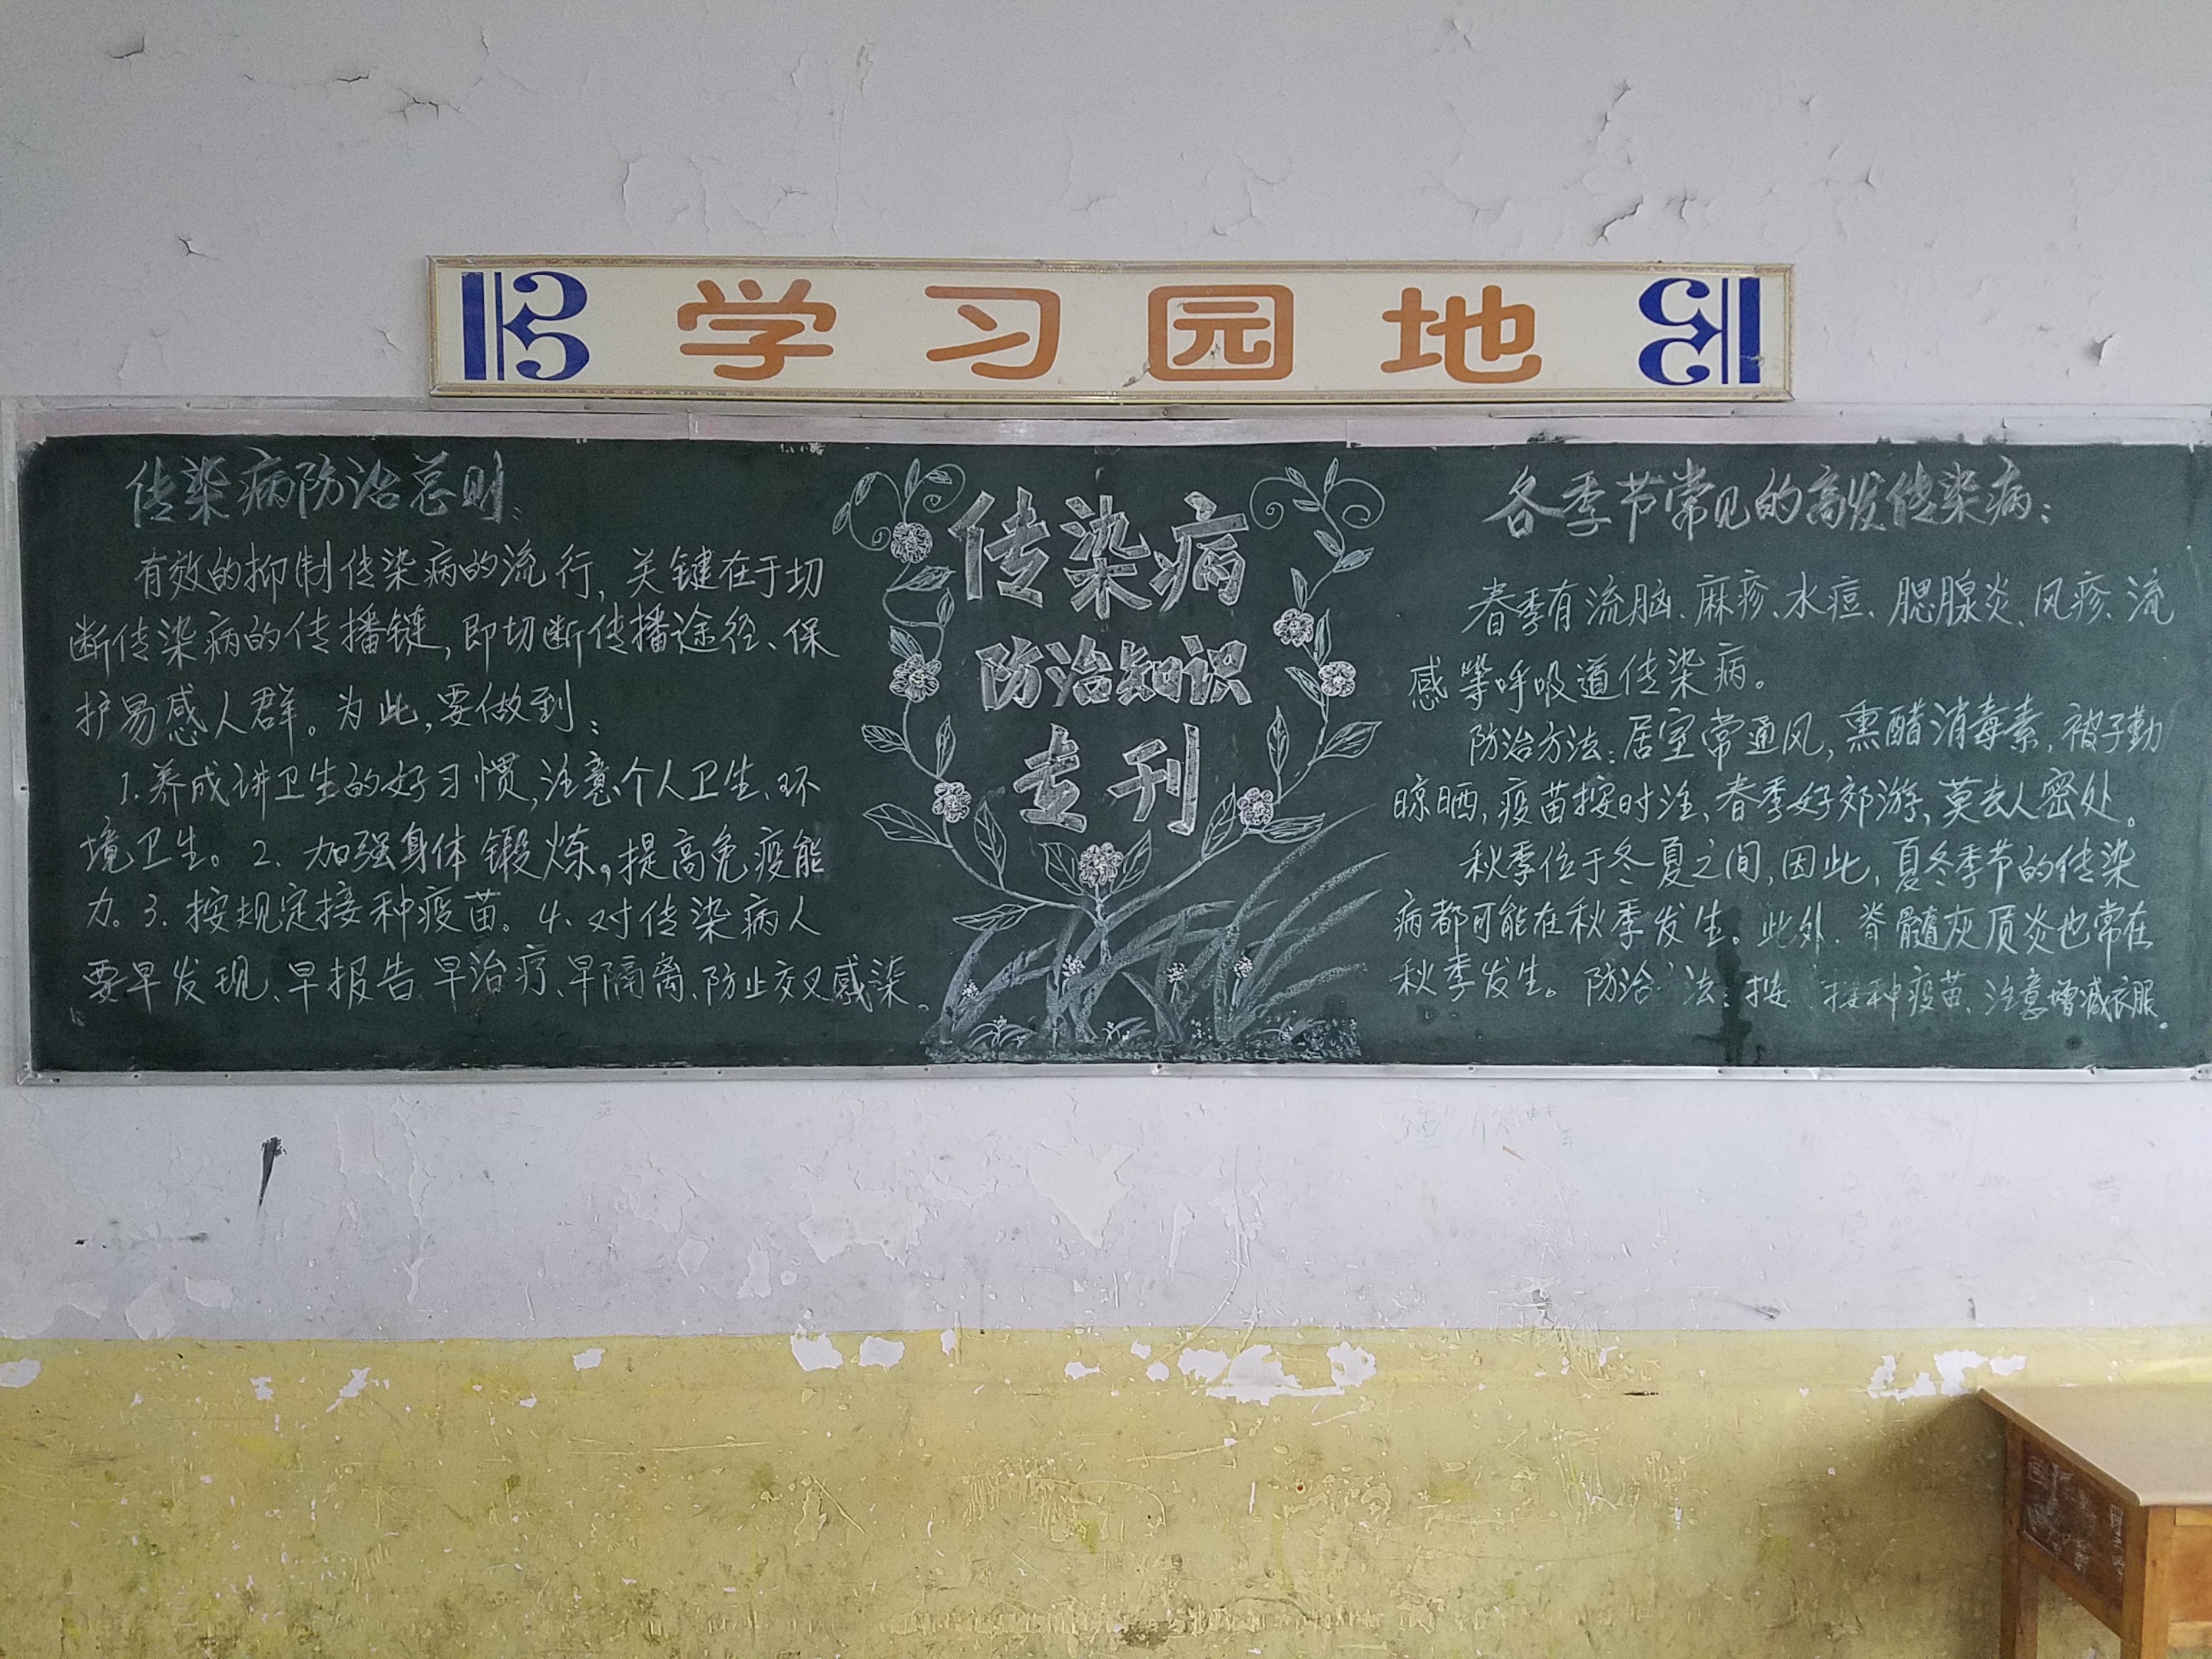 学习园地
传染病防治总则:
有效的抑制传染病的流行,关键在于切
断传染病的传播链,即切断传播途径、保
护易感人群。为此,要做到:
1.养成讲卫生的好习惯,注意个人卫生、环
境卫生。2.加强身体锻炼,提高免疫能
力。3.按规定接种疫苗。4、对传染病人
要早发现、早报告、早治疗、早隔离、防止交叉感染。
传染病
防治知识
专刊
各季节常见的高发传染病:
春季有流脑、麻疹、水痘、腮腺炎、风疹、流
感等呼吸道传染病。
防治方法:居室常通风,熏醋消毒素,被子勤
晾晒,疫苗按时注,春季好郊游,莫去人密处。
秋季位于冬夏之间,因此,夏冬季节的传染
病都可能在秋季发生。此外,脊髓灰质炎也常在
秋季发生。防治 法:按 接种疫苗、注意增减衣服。